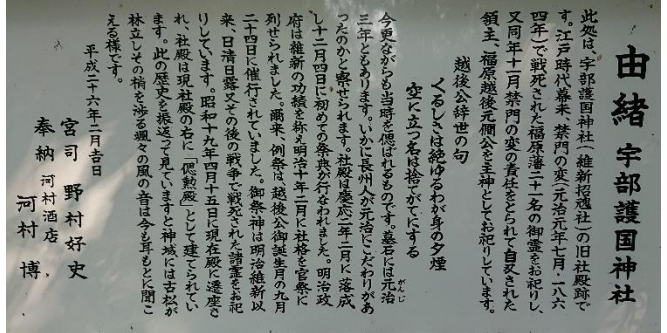 由緒 宇部護国神社
此処は、宇部護国神社(維新招魂社)の旧社殿跡で
す。江戸時代幕末、禁門の変(元治元年七月・一八六
四年)で戦死された福原藩二十一名の御霊をお祀りし、
又同年十一月禁門の変の責任をとられて自刃された
領主、福原越後元僴公を主神としてお祀りしています。
越後公辞世の句
くるしさは絶ゆるわが身の夕煙
空に立つ名は捨てがてにする
今更ながらも当時を偲ばれるものです。墓石には元治
がんじ
三年ともあります。いかに長州人が元治にこだわりがあ
ったのかと察せられます。社殿は慶応二年二月に落成
し十二月四日に初めての祭典が行なわれました。明治政
府は維新の功績を称え明治十年二月に社格を官祭に
列せられました。爾来、例祭は越後公御誕生月の九月
二十四日に催行されていました。御祭神は明治維新以
来、日清日露又その後の戦争で戦死された諸霊をお祀
りしています。昭和十九年四月十五日に現在殿に遷座さ
れ、社殿は現社殿の右に「偲勲殿」として建てられてい
ます。此の歴史を振返って見ていますと神域には古松が
林立しその梢を渉る颯々の風の音は今も耳もとに聞こ
える様です。
平成二十六年二月吉日
宮司 野村好史
奉納 河村酒店
河村 博